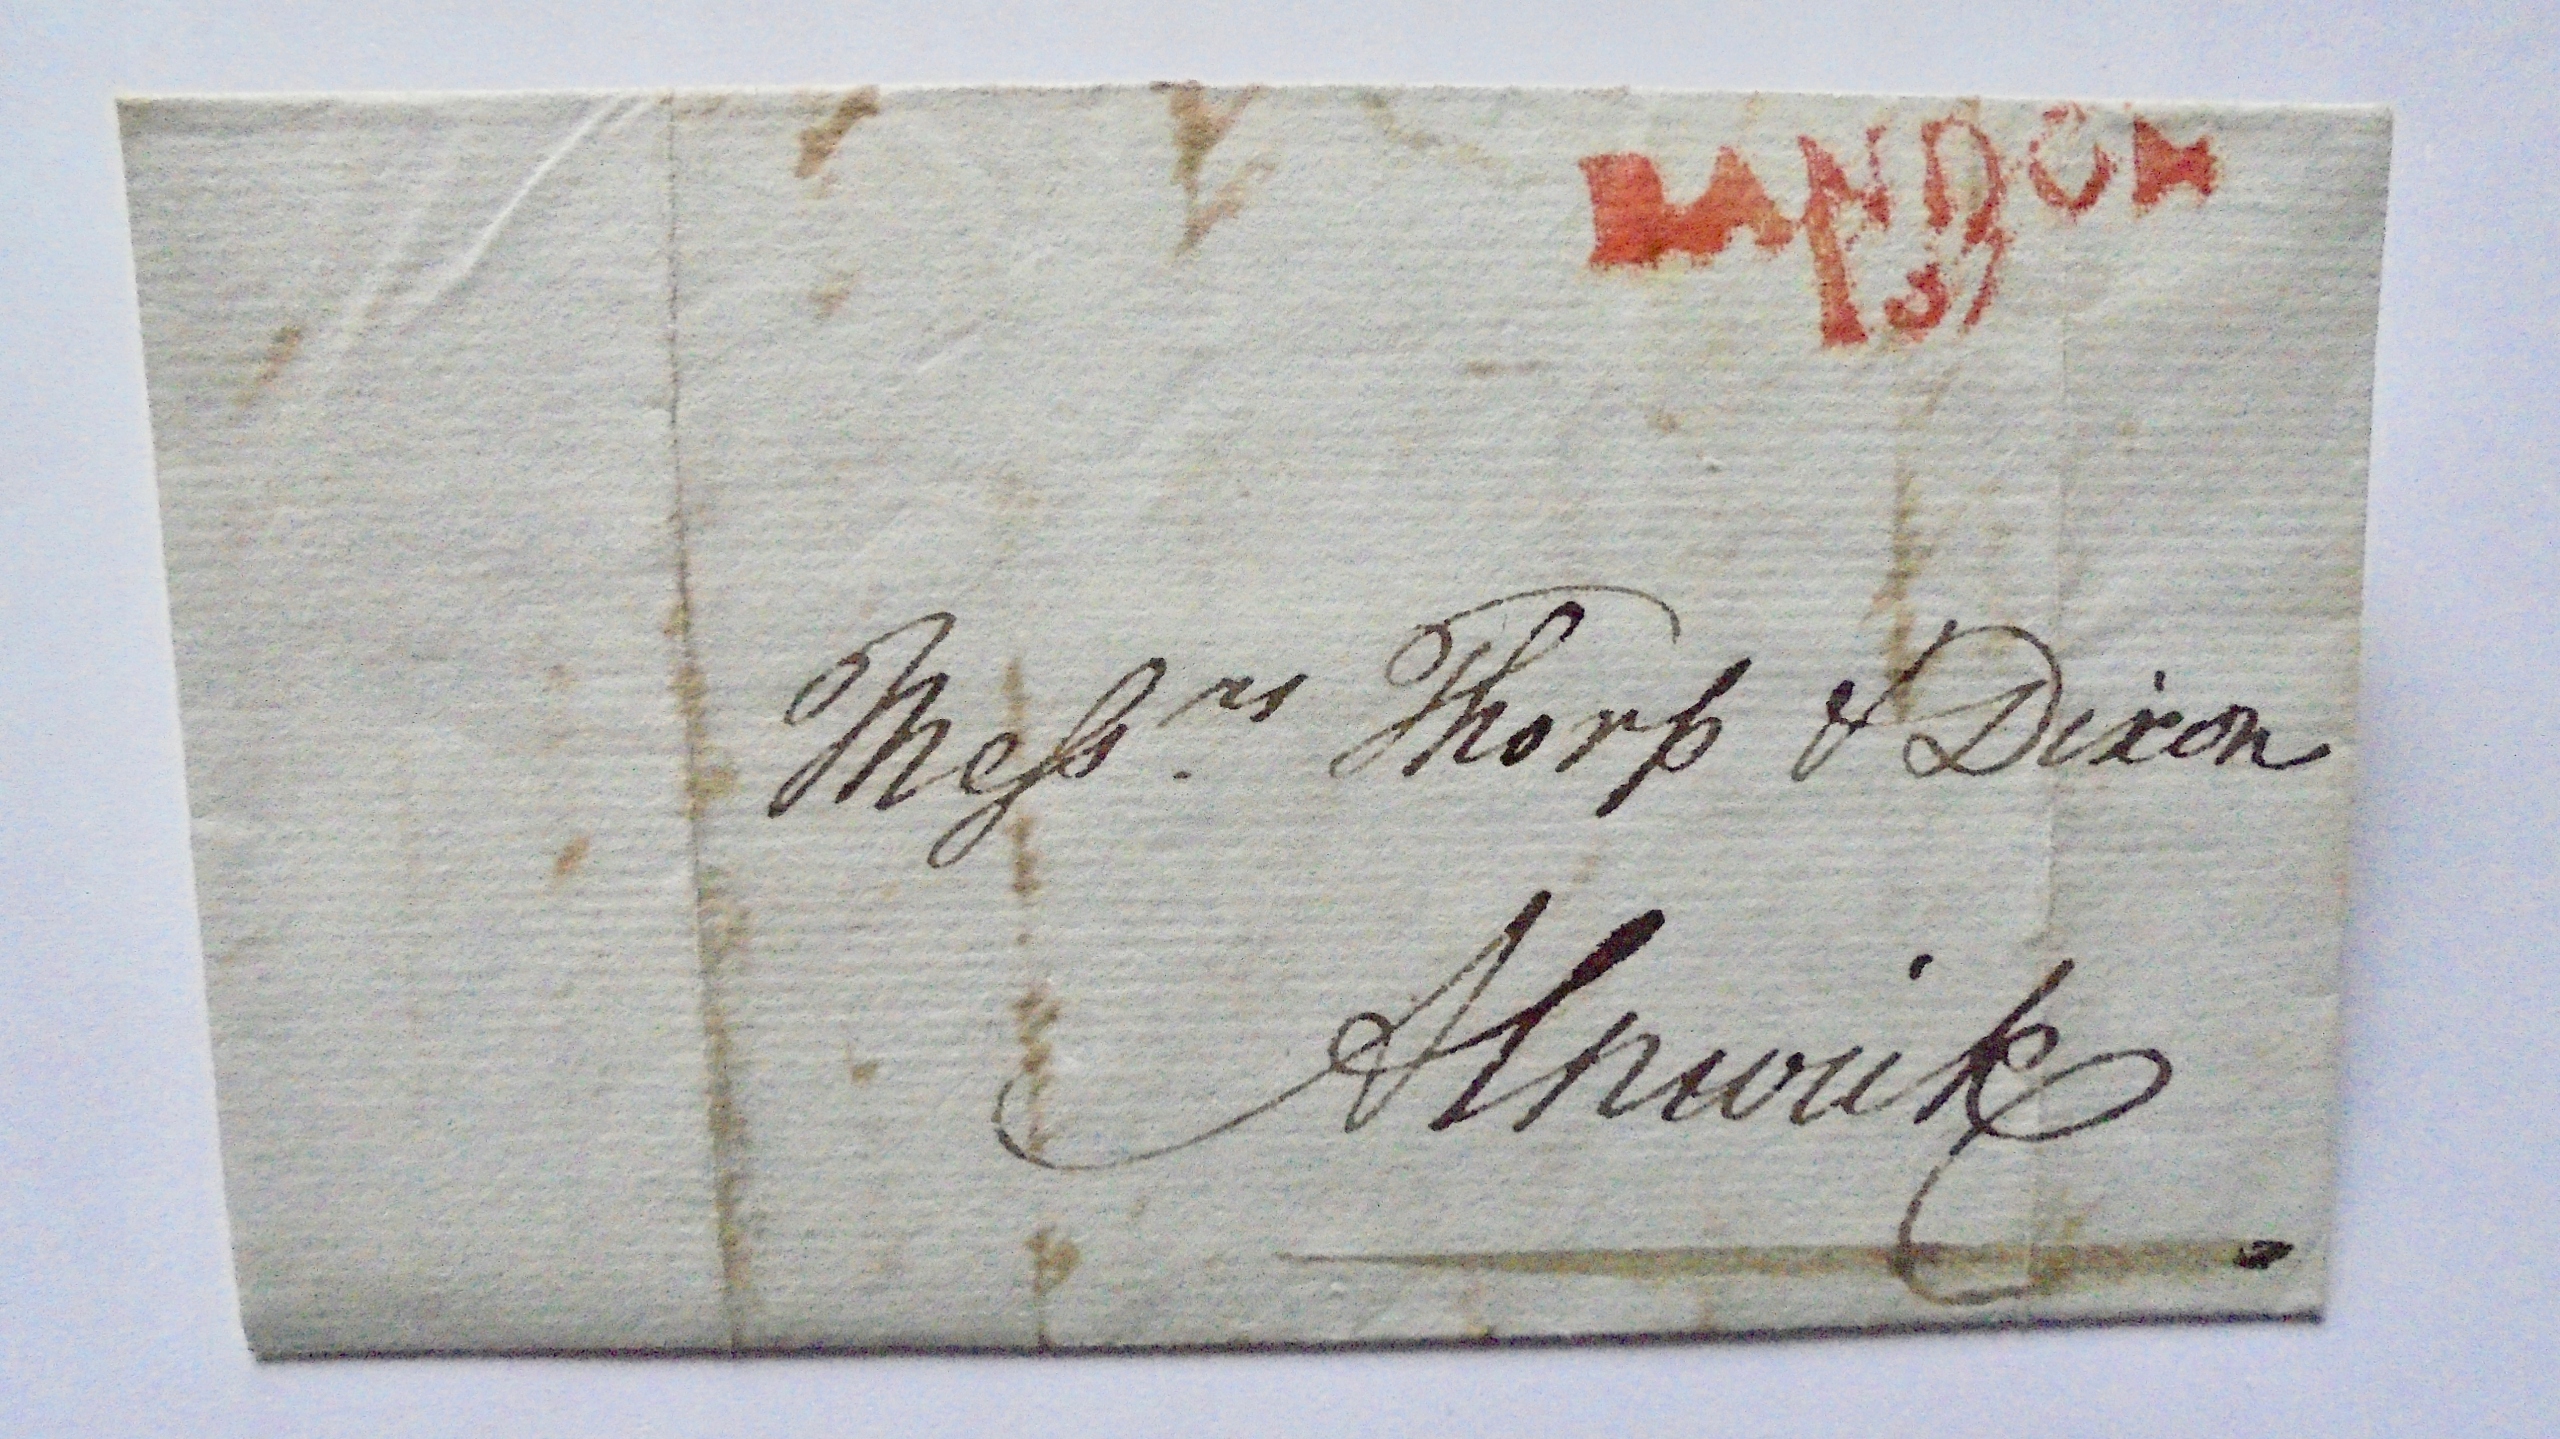 BANDON
Messrs Thorp & Dixon
Alnwick